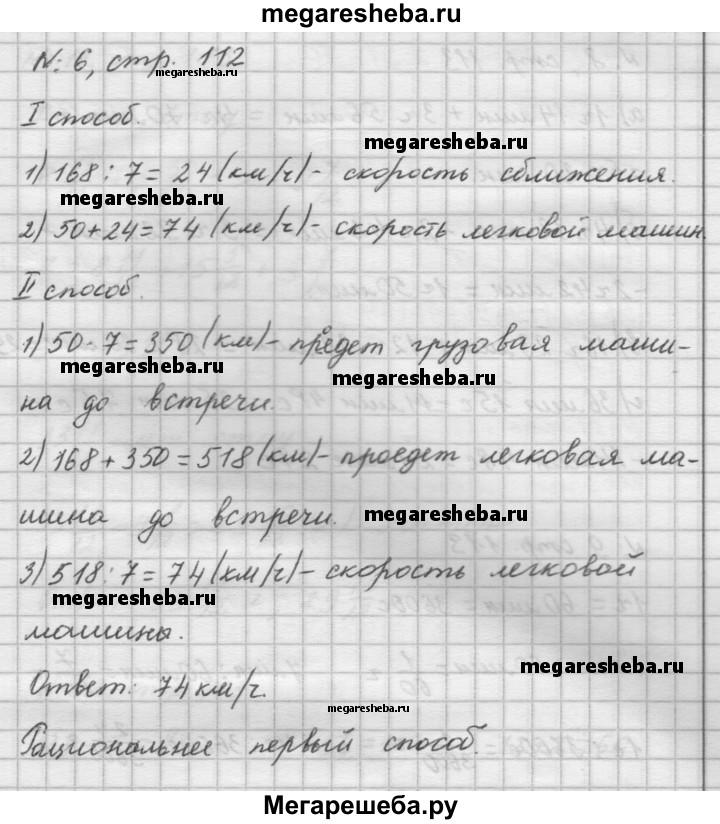 megaresheba.ru
№ 6, стр. 112
megaresheba.ru
I способ.
megaresheba.ru
1) 168 : 7 = 24 (км/ч) - скорость сближения.
megaresheba.ru
2) 50 + 24 = 74 (км/ч) - скорость легковой машин.
II способ.
1) 50 · 7 = 350 (км) - проедет грузовая маши-
megaresheba.ru
megaresheba.ru
на до встречи.
2) 168 + 350 = 518 (км) - проедет легковая ма-
шина до встречи.
megaresheba.ru
3) 518 : 7 = 74 (км/ч) - скорость легковой
megaresheba.ru
машины.
megaresheba.ru
Ответ: 74 км/ч.
megaresheba.ru
Рациональнее первый способ.
Мегарешеба.ру